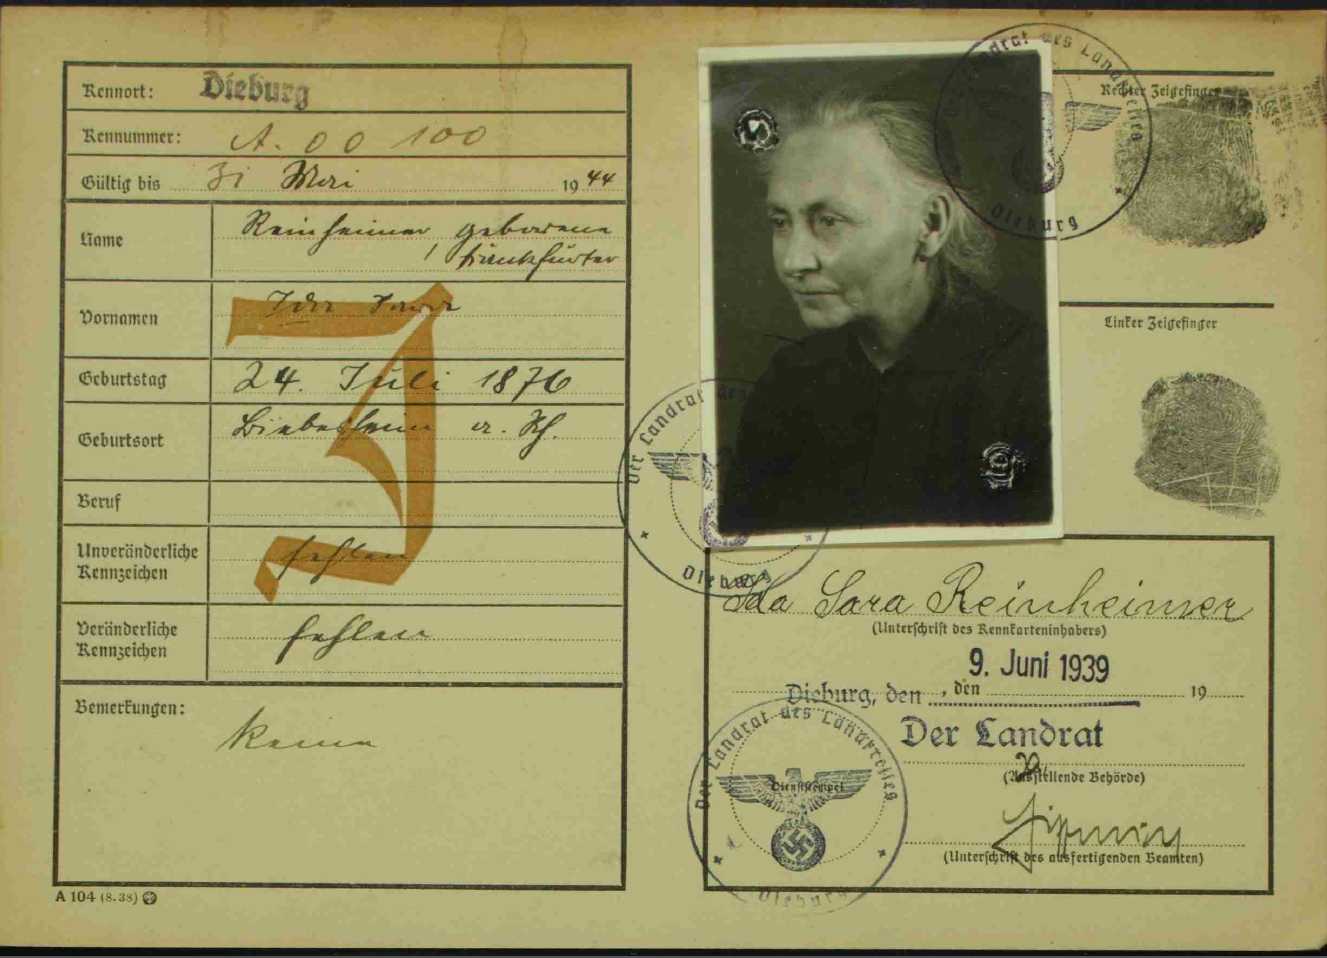 Kennort: Dieburg
Kennummer: A. 00 100
Gültig bis 31 Mai 1944
Name Reinheimer, geborene
Frankfurter
Vornamen Ida Sara
J
Geburtstag 24. Juli 1876
Geburtsort Biebesheim a. Rh.
Beruf
Unveränderliche
Kennzeichen fehlen
Veränderliche
Kennzeichen fehlen
Bemerkungen:
Keine
A 104 (8.38)
Der Landrat des Landkreises
Dieburg
Rechter Zeigefinger
Linker Zeigefinger
Der Landrat des
Dieburg
Ida Sara Reinheimer
(Unterschrift des Kennkarteninhabers)
9. Juni 1939
Dieburg, den , den 19
Der Landrat
(Ausstellende Behörde)
Der Landrat des Landkreises
Dienststempel
Dieburg
(Unterschrift des ausfertigenden Beamten)